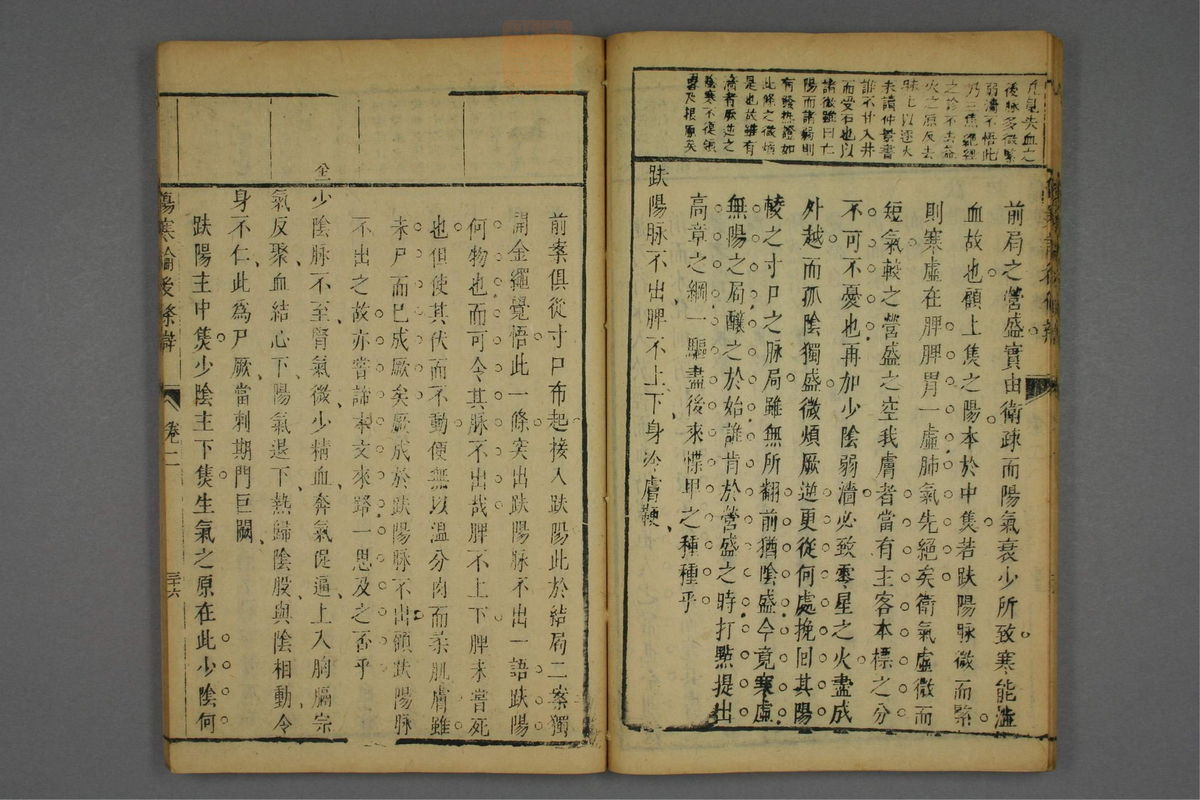 後脉多微緊
弱濇不悟此
乃三焦絶經
火之原反去
未讀仲景書
誰不甘入井
而受石也以
諸微雖曰亡
陽而諸弱則
有發熱證如
此條之微煩
是也故雖有
濇者厥逆之
前局之營盛實由衛疎而陽氣衰少所致寒能濇
血故也顧上焦之陽本於中焦若趺陽脉微而緊
則寒虛在脾脾胃一虛肺氣先絶矣衛氣虛微而
短氣較之營盛之空我膚者當有主客本標之分
不可不憂也再加少陰弱濇必致零星之火盡成
外越而孤陰獨盛微煩厥逆更從何處挽回其陽
較之寸口之脉局雖無所翻前猶陰盛今竟寒虛
無陽之局釀之於始誰肯於營盛之時打點提出
高章之綱一驅盡後來慄卑之種種乎
趺陽脉不出脾不上下身冷膚鞕
前案俱從寸口布起接入趺陽此於結局二案獨
開金繩覺悟此一條突出趺陽脉不出一語趺陽
何物也而可令其脉不出哉脾不上下脾未嘗死
也但使其伏而不動便無以溫分肉而柔肌膚雖
未尸而已成厥矣厥成於趺陽脉不出顧趺陽脉
不出之故亦嘗諦本文來路一思及之否乎
少陰脉不至腎氣微少精血奔氣促逼上入胸膈宗
氣反聚血結心下陽氣退下熱歸陰股與陰相動令
身不仁此爲尸厥當刺期門巨闕
趺陽主中焦少陰主下焦生氣之原在此少陰何
傷寒論後條辯
卷二
三十六